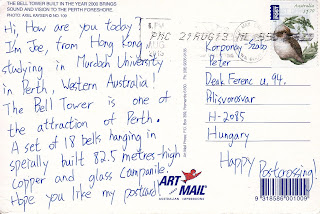 THE BELL TOWER BUILT IN THE YEAR 2000 BRINGS
SOUND AND VISION TO THE PERTH FORESHORE.
PHOTO: AXEL KAYSER © NO: 100
Hi, How are you today?
I'm Joe, from Hong Kong
studying in Murdoch University
in Perth, Western Australia!
The Bell Tower is one of
the attraction of Perth.
A set of 18 bells hanging in
specially built 82.5 metres-high
copper and glass Campanile.
Hope you like my postcard!
Australia
Korponay-Szabo
Peter
Deak Ferenc u. 94.
Pilisvorosvar
H-2085
Hungary
Happy Postcrossing!
ART MAIL
AUSTRALIAN IMPRESSIONS
9 318586 001009